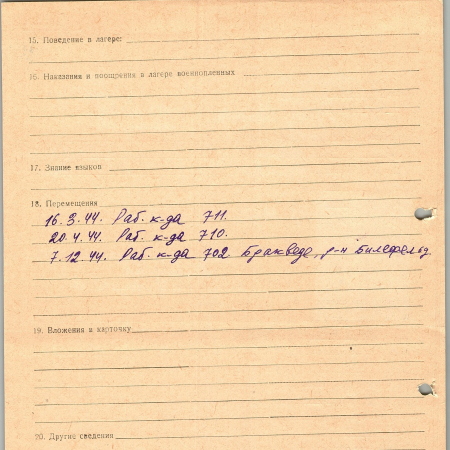 15. Поведение в лагере:
16. Наказания и поощрения в лагере военнопленных
17. Знание языков
18. Перемещения
16.3.44. Раб. к-да 711.
20.4.44. Раб. к-да 710.
7.12.44. Раб. к-да 702 Бракведе, р-н Билефельд.
19. Вложения в карточку
20. Другие сведения